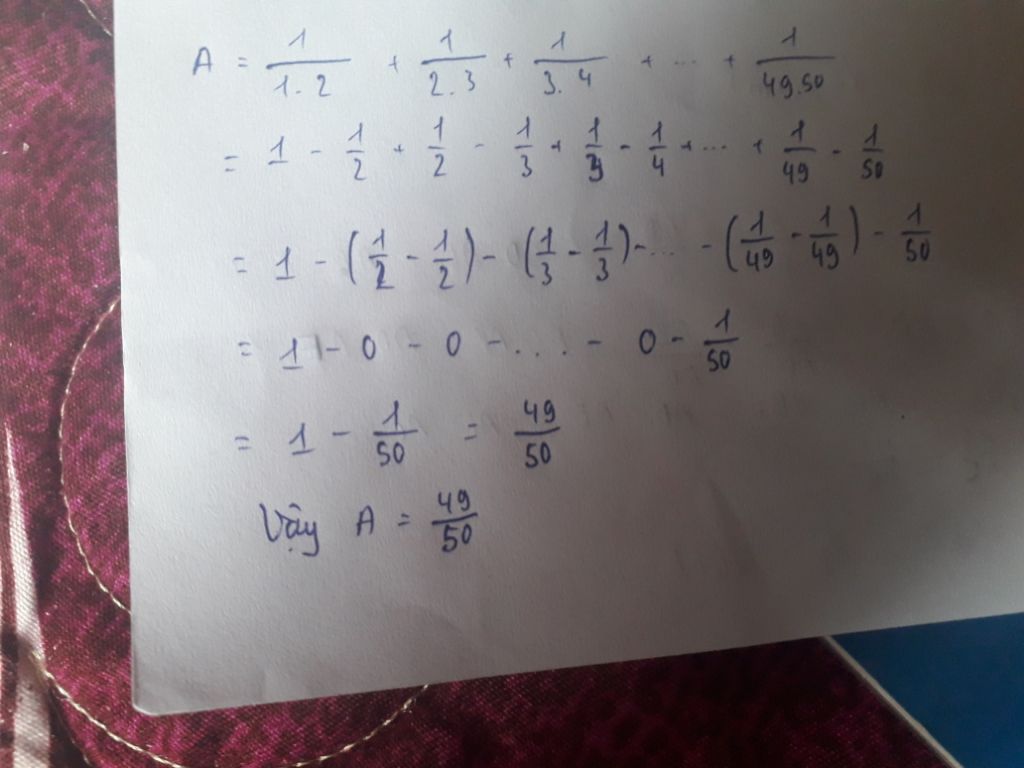 A = 1/1.2 + 1/2.3 + 1/3.4 + ... + 1/49.50
= 1 - 1/2 + 1/2 - 1/3 + 1/3 - 1/4 + ... + 1/49 - 1/50
= 1 - (1/2 - 1/2) - (1/3 - 1/3) - ... - (1/49 - 1/49) - 1/50
= 1 - 0 - 0 - .... - 0 - 1/50
= 1 - 1/50 = 49/50
Vậy A = 49/50